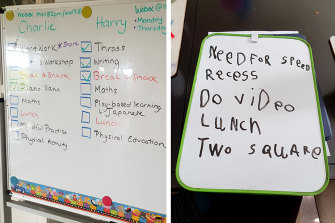 Charlie
Harry
Webex
Monday
Thursday
work *Share
workshop
& Snack
Maths
Lunch
Mindful Practise
Physical Activity
Thrass
Writing
Break & Snack
Maths
Play-based learning
Japanese
Lunch
Physical Education
NEED FOR SPEED
RECESS
DO VIDEO
LUNCH
TWO SQUARE